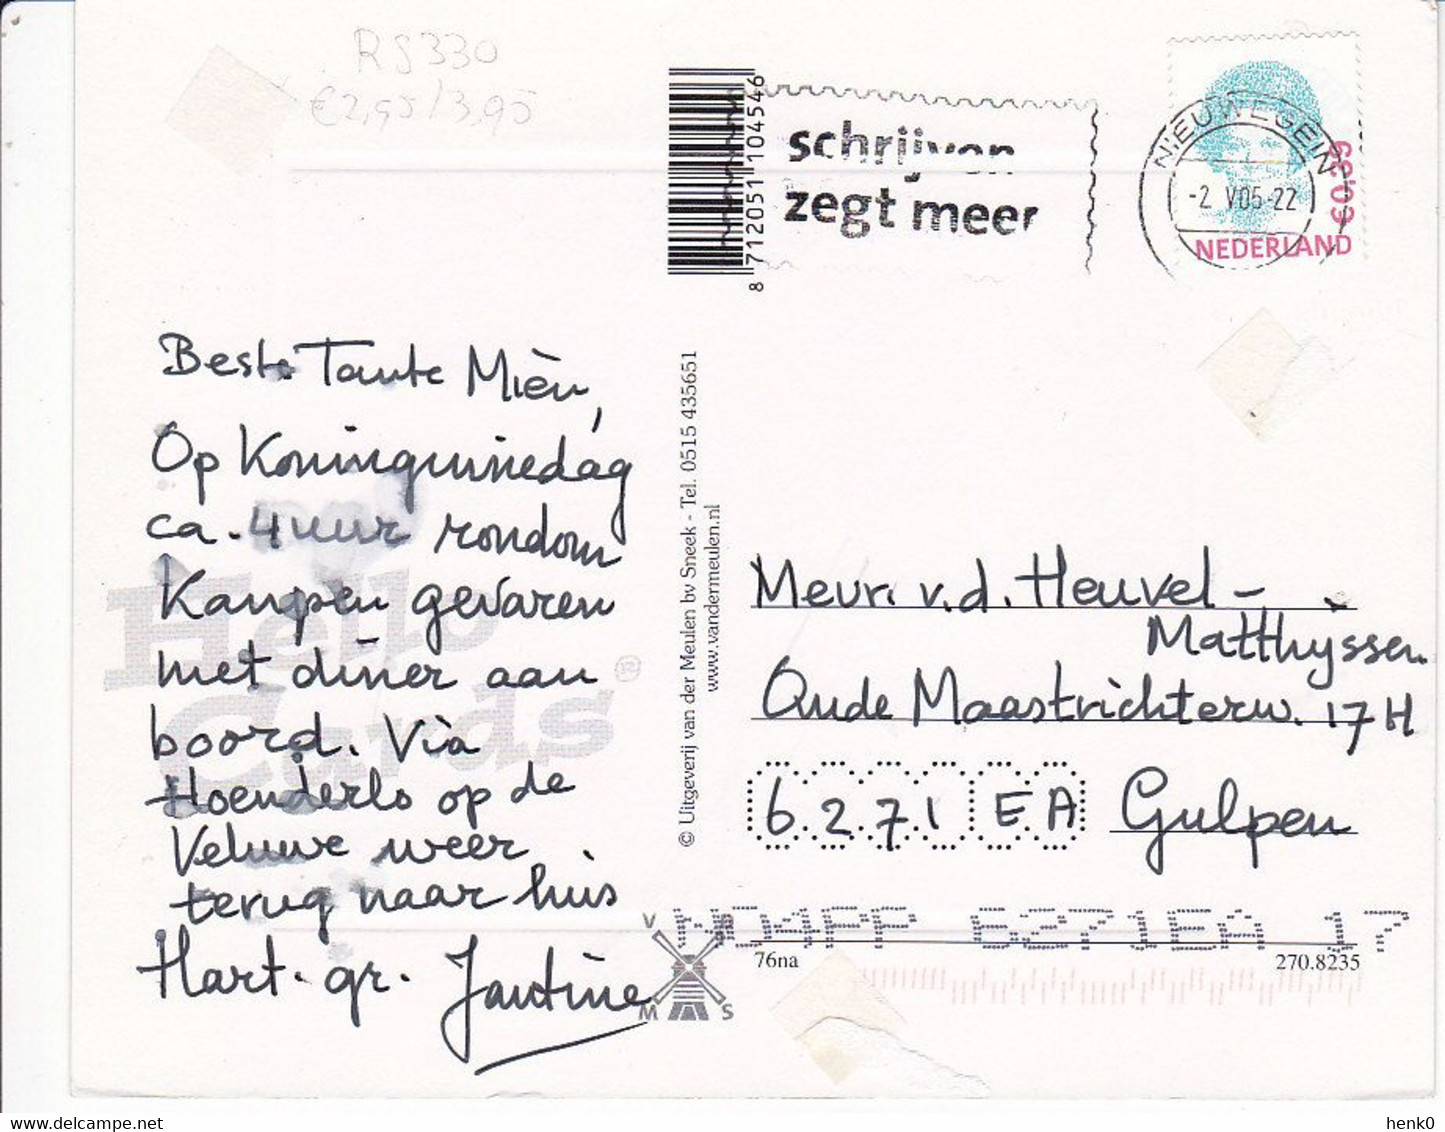 RS330
€2,95/3,95
8 712051 104546
schrijven
zegt meer
NIEUWEGEIN
-2 V05-22
€0,39
NEDERLAND
Beste Tante Mièn,
Op Koninginnedag
ca. 4 uur rondom
Kampen gevaren
met diner aan
boord. Via
Hoenderlo op de
Veluwe weer
terug naar huis
Hart. gr. Jantine
Hello
Cards®
© Uitgeverij van der Meulen bv Sneek - Tel. 0515 435651
www.vandermeulen.nl
Mevr. v.d. Heuvel -
Matthijssen
Oude Maastrichterw. 17H
6271 EA Gulpen
6271EA 17
V D
M S
76na
270.8235
henk0